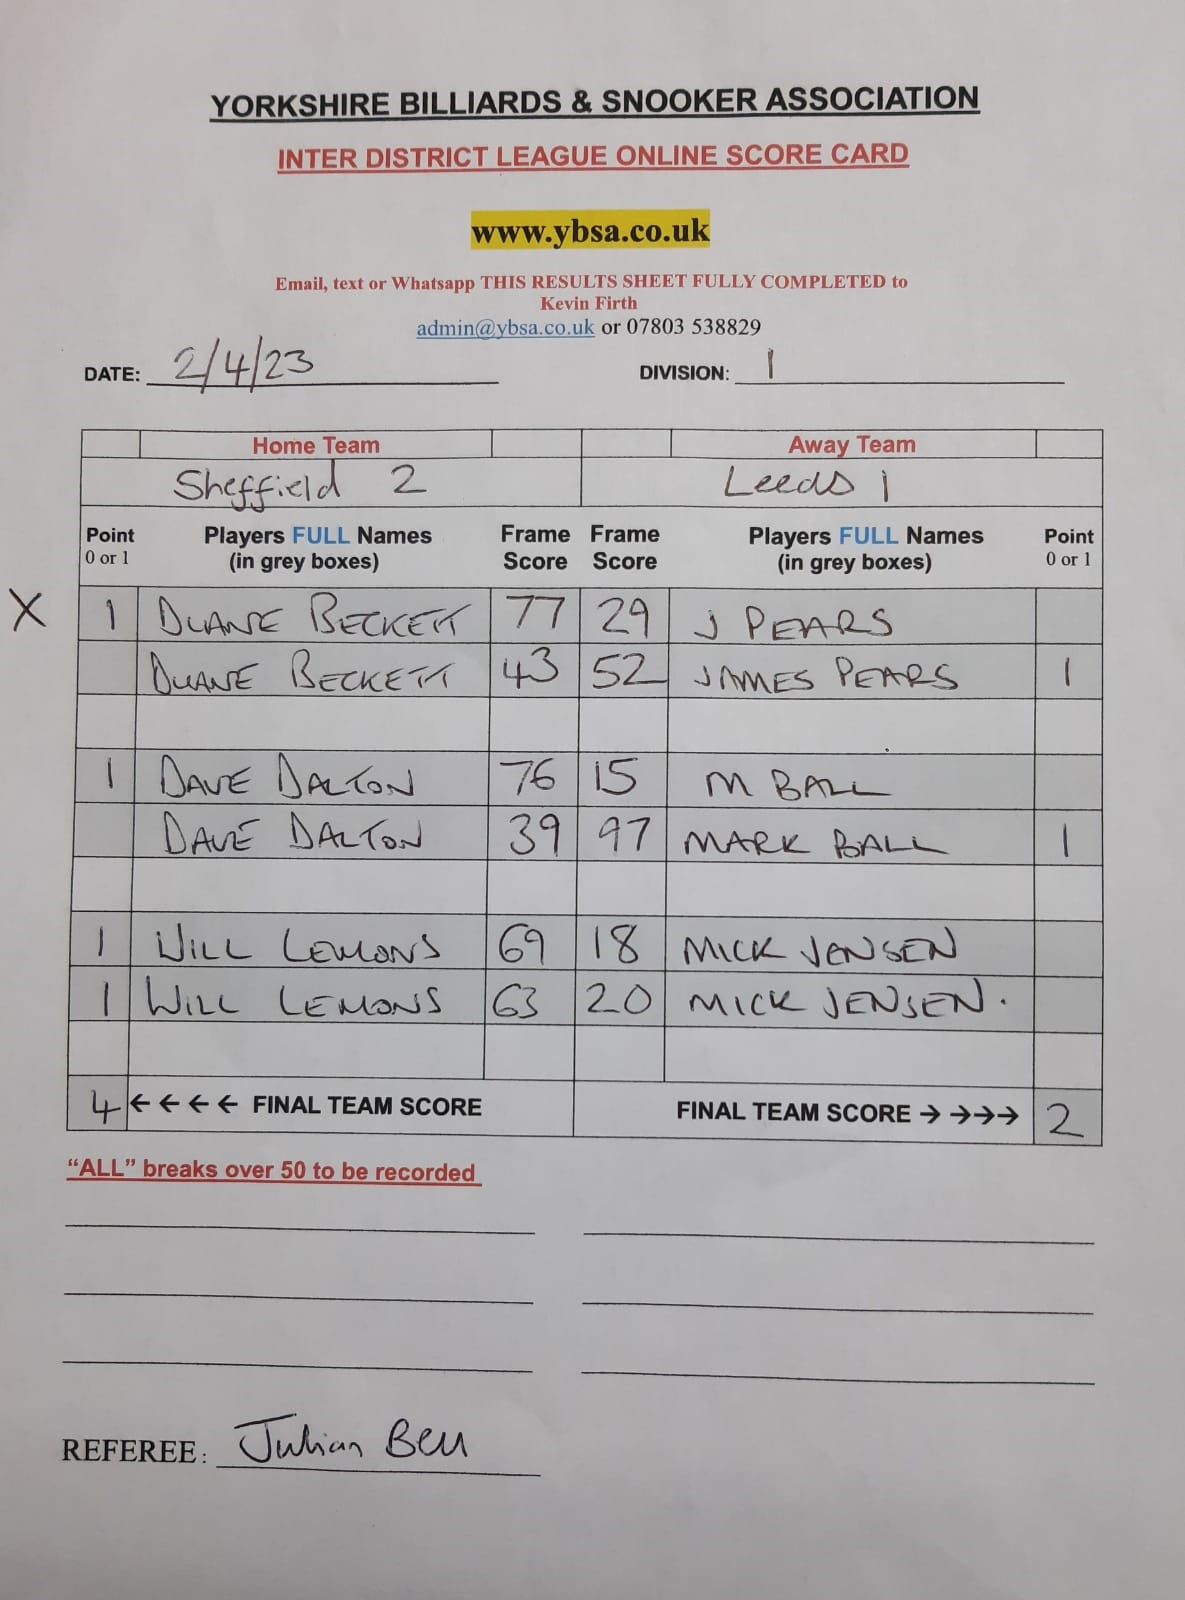 YORKSHIRE BILLIARDS & SNOOKER ASSOCIATION
INTER DISTRICT LEAGUE ONLINE SCORE CARD
www.ybsa.co.uk
Email, text or Whatsapp THIS RESULTS SHEET FULLY COMPLETED to
Kevin Firth
admin@ybsa.co.uk or 07803 538829
DATE: 2/4/23 DIVISION: 1
Home Team Away Team
Sheffield 2 Leeds 1
Point Players FULL Names Frame Frame Players FULL Names Point
0 or 1 (in grey boxes) Score Score (in grey boxes) 0 or 1
X 1 DUANE BECKETT 77 29 J PEARS
DUANE BECKETT 43 52 JAMES PEARS 1
1 DAVE DALTON 76 15 M BALL
DAVE DALTON 39 97 MARK BALL 1
1 WILL LEMONS 69 18 MICK JENSEN
1 WILL LEMONS 63 20 MICK JENSEN.
4 ← ← ← ← FINAL TEAM SCORE FINAL TEAM SCORE → →→→ 2
“ALL” breaks over 50 to be recorded
REFEREE: Julian Bell